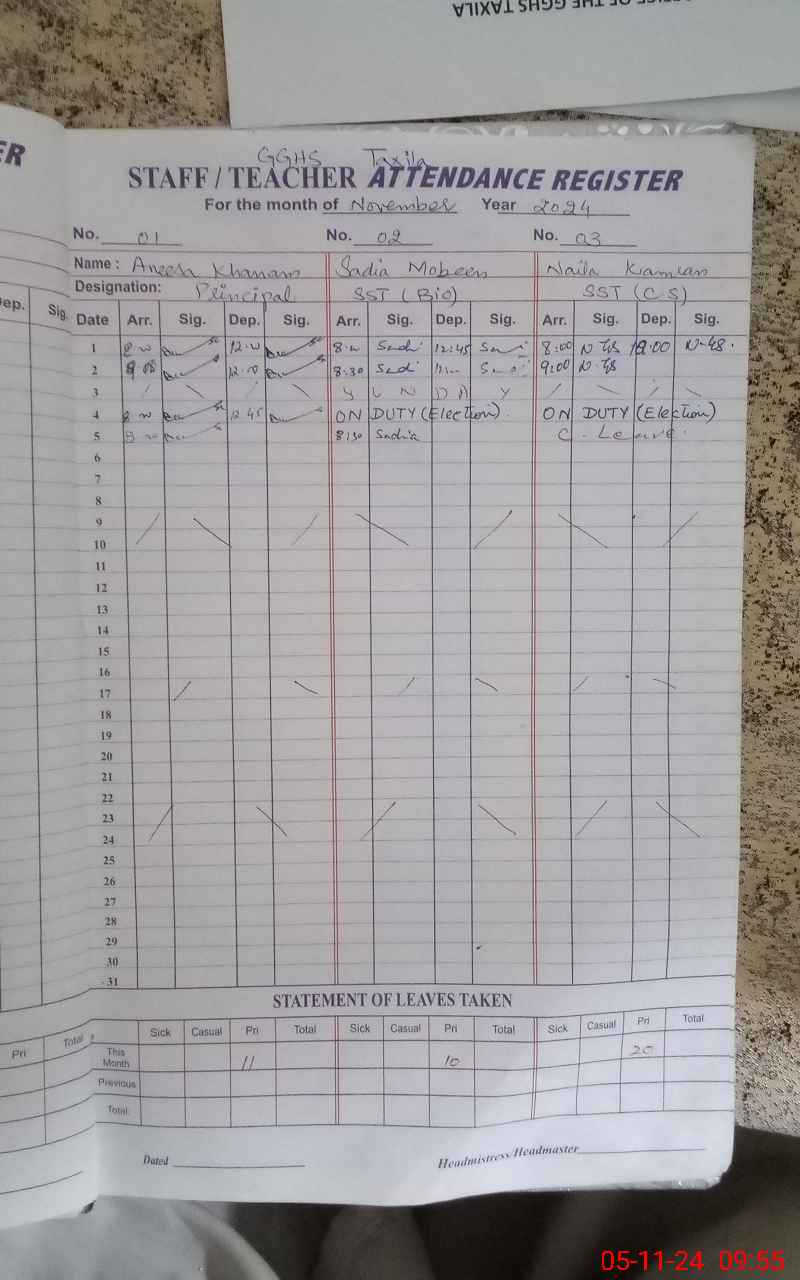 OF THE GGHS TAXILA
ER
GGHS Taxila
STAFF / TEACHER ATTENDANCE REGISTER
For the month of November Year 2024
No. 01 No. 02 No. 03
Name : Aneesa Khanam Sadia Mobeen Naila Kamran
Designation: Principal SST (Bio) SST (C.S)
Dep. Sig. Date Arr. Sig. Dep. Sig. Arr. Sig. Dep. Sig. Arr. Sig. Dep. Sig.
1 12:45 8:00
2 8:30 9:00
3 S U N D A Y
4 12 45 ON DUTY (Election). ON DUTY (Election)
5 8:30 Sadia C. Leave.
6
7
8
9
10
11
12
13
14
15
16
17
18
19
20
21
22
23
24
25
26
27
28
29
30
31
STATEMENT OF LEAVES TAKEN
Pri Total Sick Casual Pri Total Sick Casual Pri Total Sick Casual Pri Total
This Month 11 10 20
Previous
Total:
Dated Headmistress/Headmaster
05-11-24 09:55